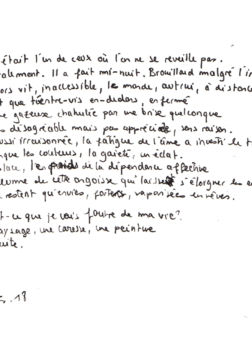 était l'un de ceux où l'on ne se réveille pas.
alement. Il a fait mi-nuit. Brouillard malgré l'i
ors vit, inaccessible, le monde, autrui, à distanc
t que trente-vis en-dedans, enfermé
e gazeuse chahutée par une brise quelconque
désagréable mais pas apprécié, sans raison.
ussi irraisonnée, la fatigue de l'âme a investi le t
que les couleurs, la gaieté, un éclat.
place, le poids de la dépendance affective
lume de cette angoisse qui laisse s'éloigner les e
restent qu'envies, vaporisées en rêves.
t-ce que je vais foutre de ma vie?
aysage, une caresse, une peinture
uite.
. 18